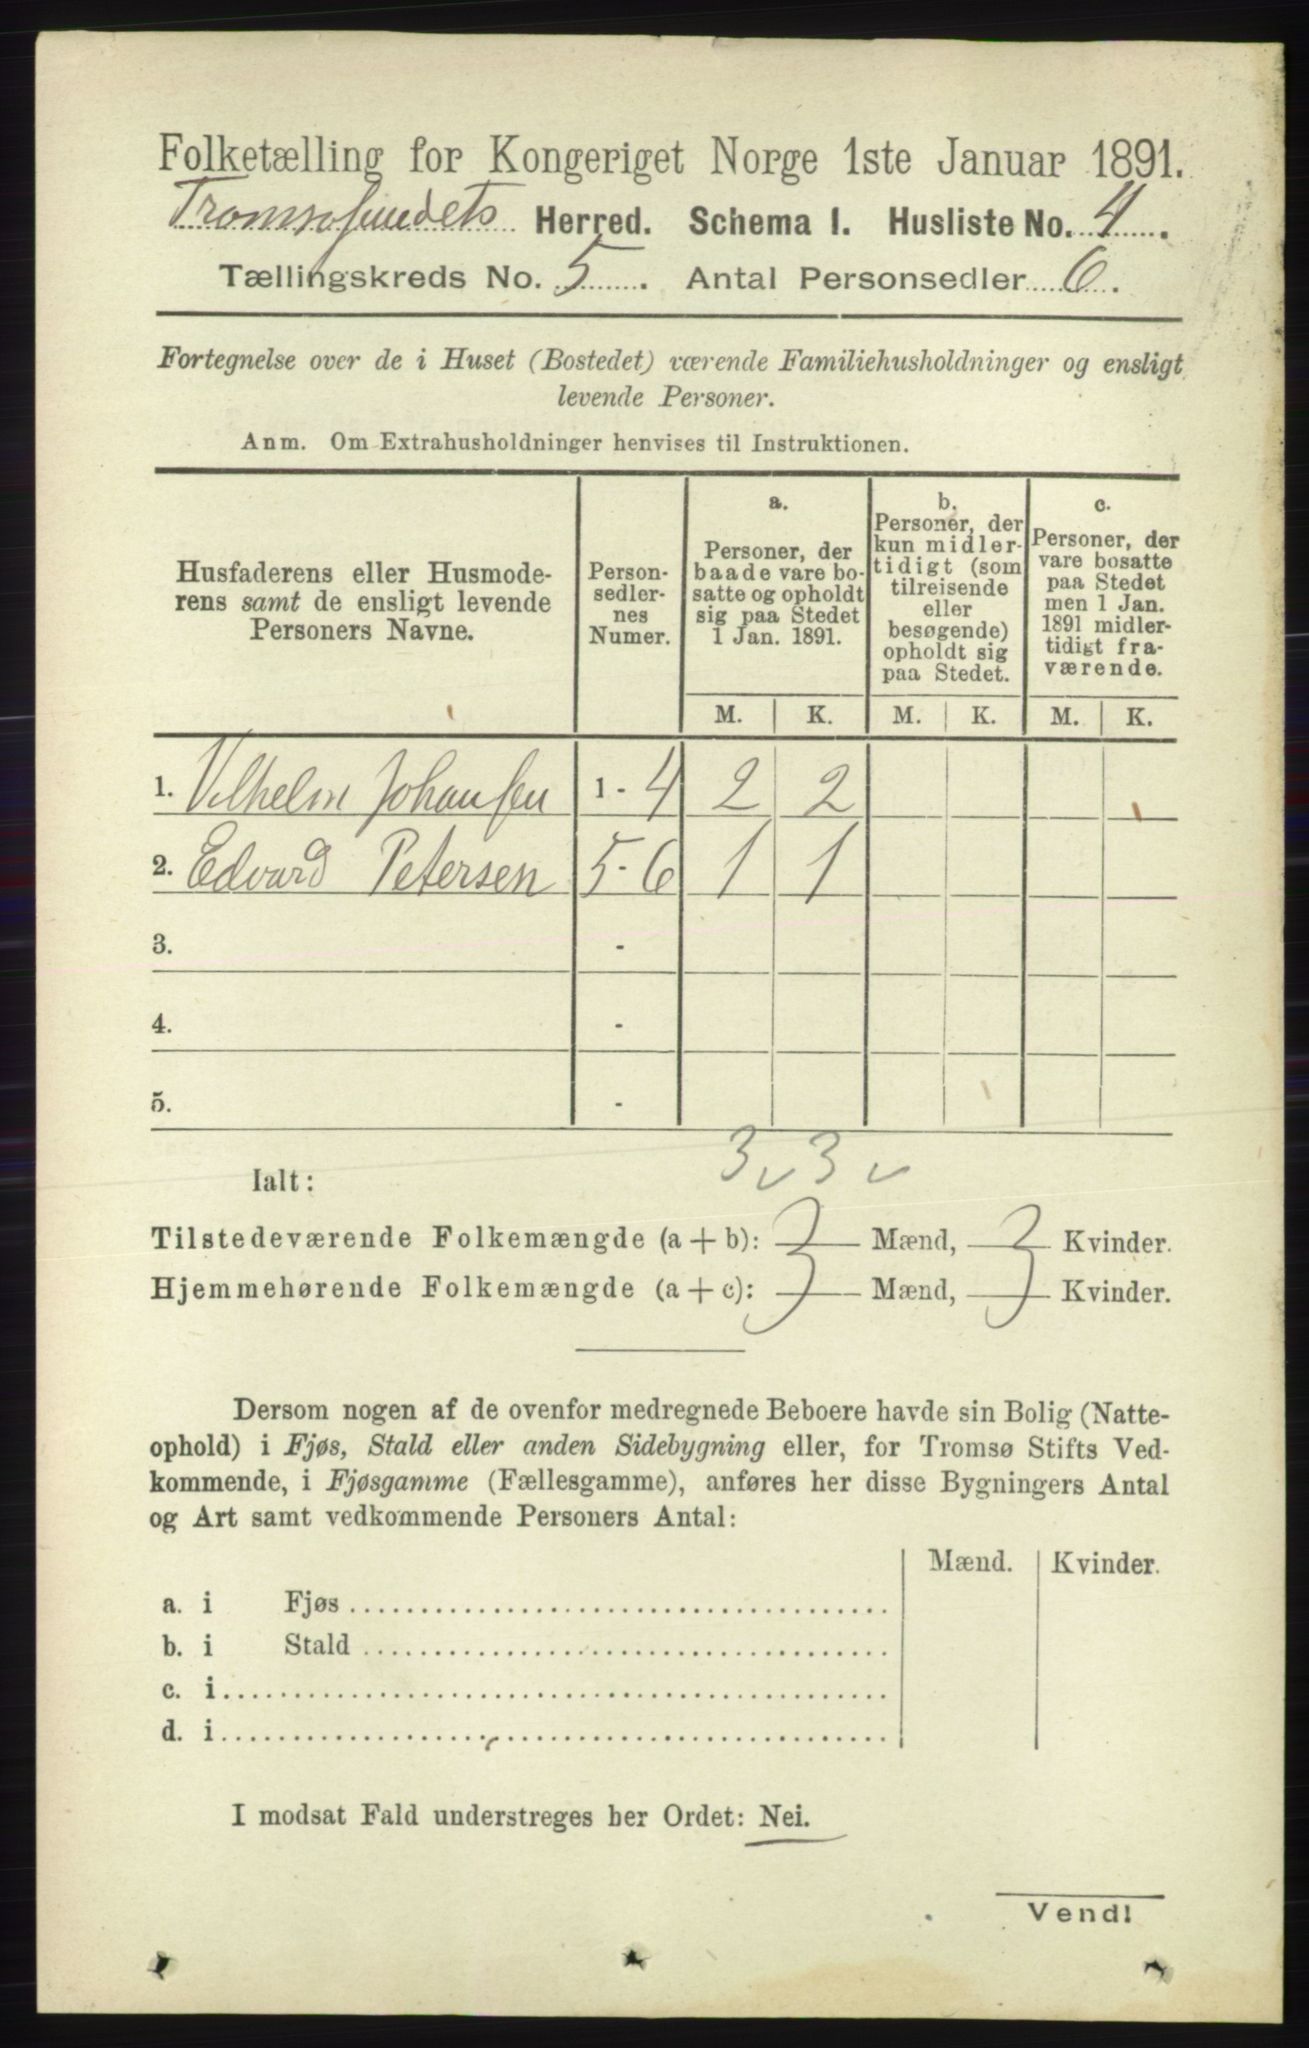 Folketælling for Kongeriget Norge 1ste Januar 1891.
Tromsøsundets Herred. Schema I. Husliste No. 4.
Tællingskreds No. 5. Antal Personsedler 6.
Fortegnelse over de i Huset (Bostedet) værende Familiehusholdninger og ensligt
levende Personer.
Anm. Om Extrahusholdninger henvises til Instruktionen.
Husfaderens eller Husmode-
rens samt de ensligt levende
Personers Navne.
Person-
sedler-
nes
Numer.
a.
Personer, der
baade vare bo-
satte og opholdt
sig paa Stedet
1 Jan. 1891.
b.
Personer, der
kun midler-
tidigt (som
tilreisende
eller
besøgende)
opholdt sig
paa Stedet.
c.
Personer, der
vare bosatte
paa Stedet
men 1 Jan.
1891 midler-
tidigt fra-
værende.
M. K. M. K. M. K.
1. Vilhelm Johansen 1 - 4 2 2
2. Edvard Petersen 5 - 6 1 1
3. -
4. -
5. -
3 3
Ialt:
Tilstedeværende Folkemængde (a + b): 3 Mænd, 3 Kvinder.
Hjemmehørende Folkemængde (a + c): 3 Mænd, 3 Kvinder.
Dersom nogen af de ovenfor medregnede Beboere havde sin Bolig (Natte-
ophold) i Fjøs, Stald eller anden Sidebygning eller, for Tromsø Stifts Ved-
kommende, i Fjøsgamme (Fællesgamme), anføres her disse Bygningers Antal
og Art samt vedkommende Personers Antal:
Mænd. Kvinder.
a. i Fjøs
b. i Stald
c. i
d. i
I modsat Fald understreges her Ordet: Nei.
Vend!